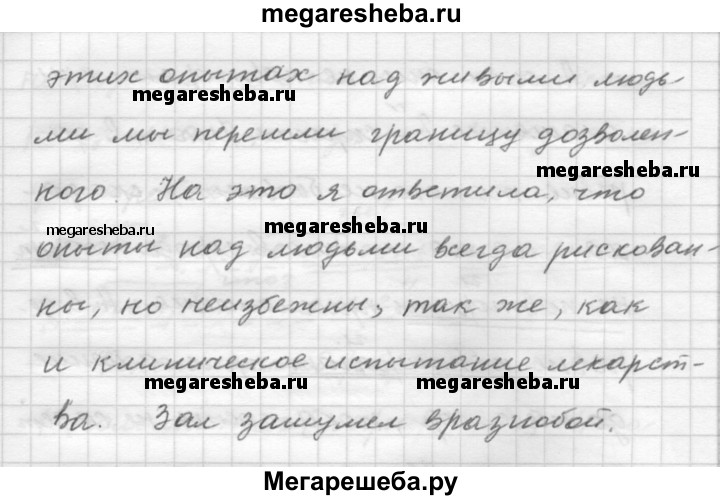 megaresheba.ru
этих опытах над живыми людь
megaresheba.ru
ми мы перешли границу дозволен-
megaresheba.ru
ного. На это я ответила, что
megaresheba.ru
megaresheba.ru
опыты над людьми всегда рискован-
ны, но неизбежны, так же, как
и клиническое испытание лекарст-
megaresheba.ru
megaresheba.ru
ва. Зал зашумел вразнобой.
Мегарешеба.ру